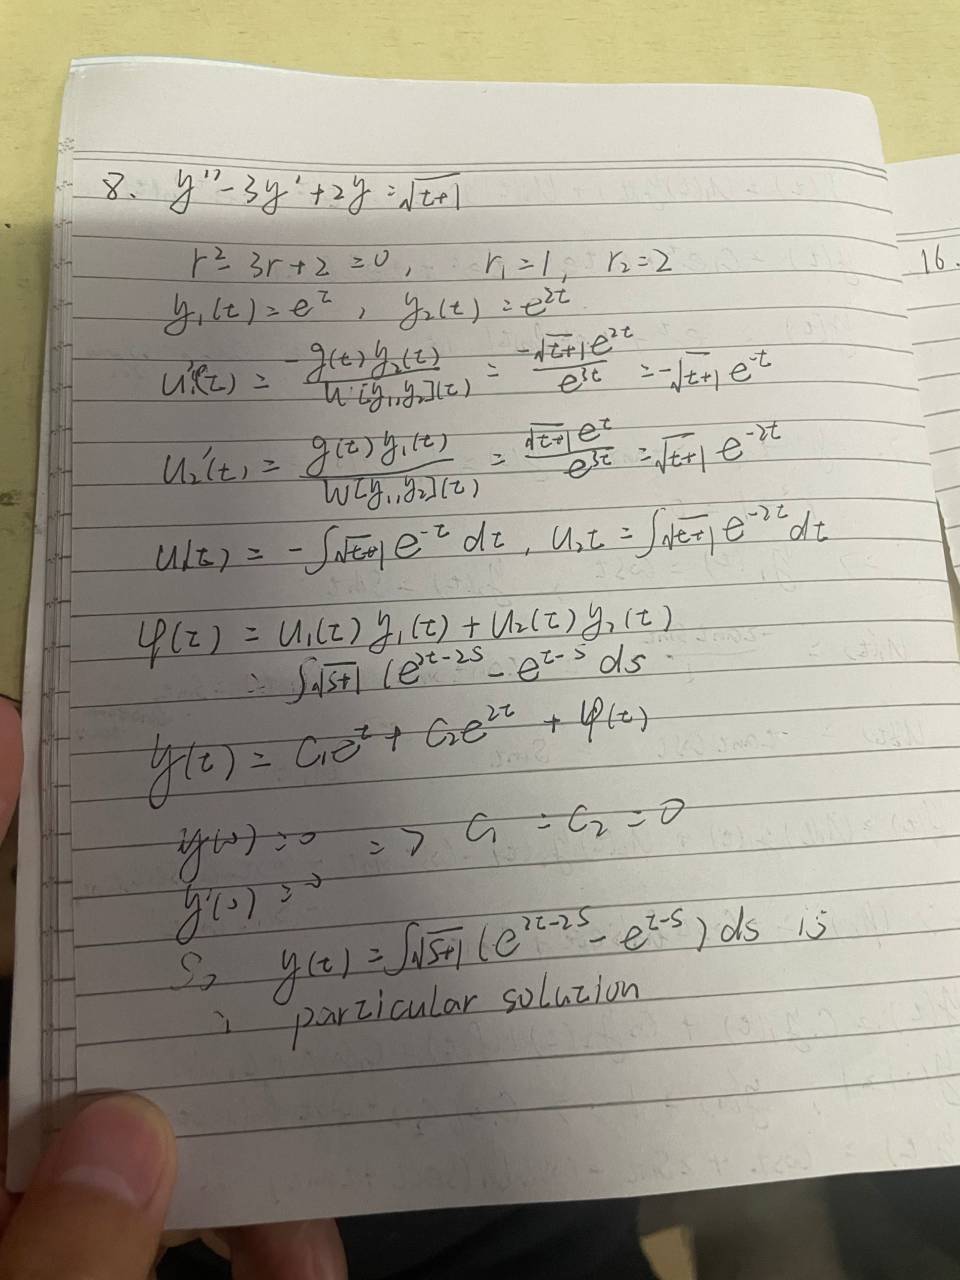 8. y'' - 3y' + 2y = √t+1
r² - 3r + 2 = 0, r₁ = 1, r₂ = 2
y₁(t) = e^t, y₂(t) = e^2t
u₁'(t) = -g(t)y₂(t) / W[y₁,y₂](t) = -√t+1 e^2t / e^3t = -√t+1 e^-t
u₂'(t) = g(t)y₁(t) / W[y₁,y₂](t) = √t+1 e^t / e^3t = √t+1 e^-2t
u₁(t) = -∫√t+1 e^-t dt, u₂t = ∫√t+1 e^-2t dt
φ(t) = u₁(t)y₁(t) + u₂(t)y₂(t)
= ∫√s+1 (e^2t-2s - e^t-s ds
y(t) = c₁e^t + c₂e^2t + φ(t)
y(0) = 0 => c₁ = c₂ = 0
y'(0) = 0
So y(t) = ∫√s+1 (e^2t-2s - e^t-s) ds is
particular solution
16.